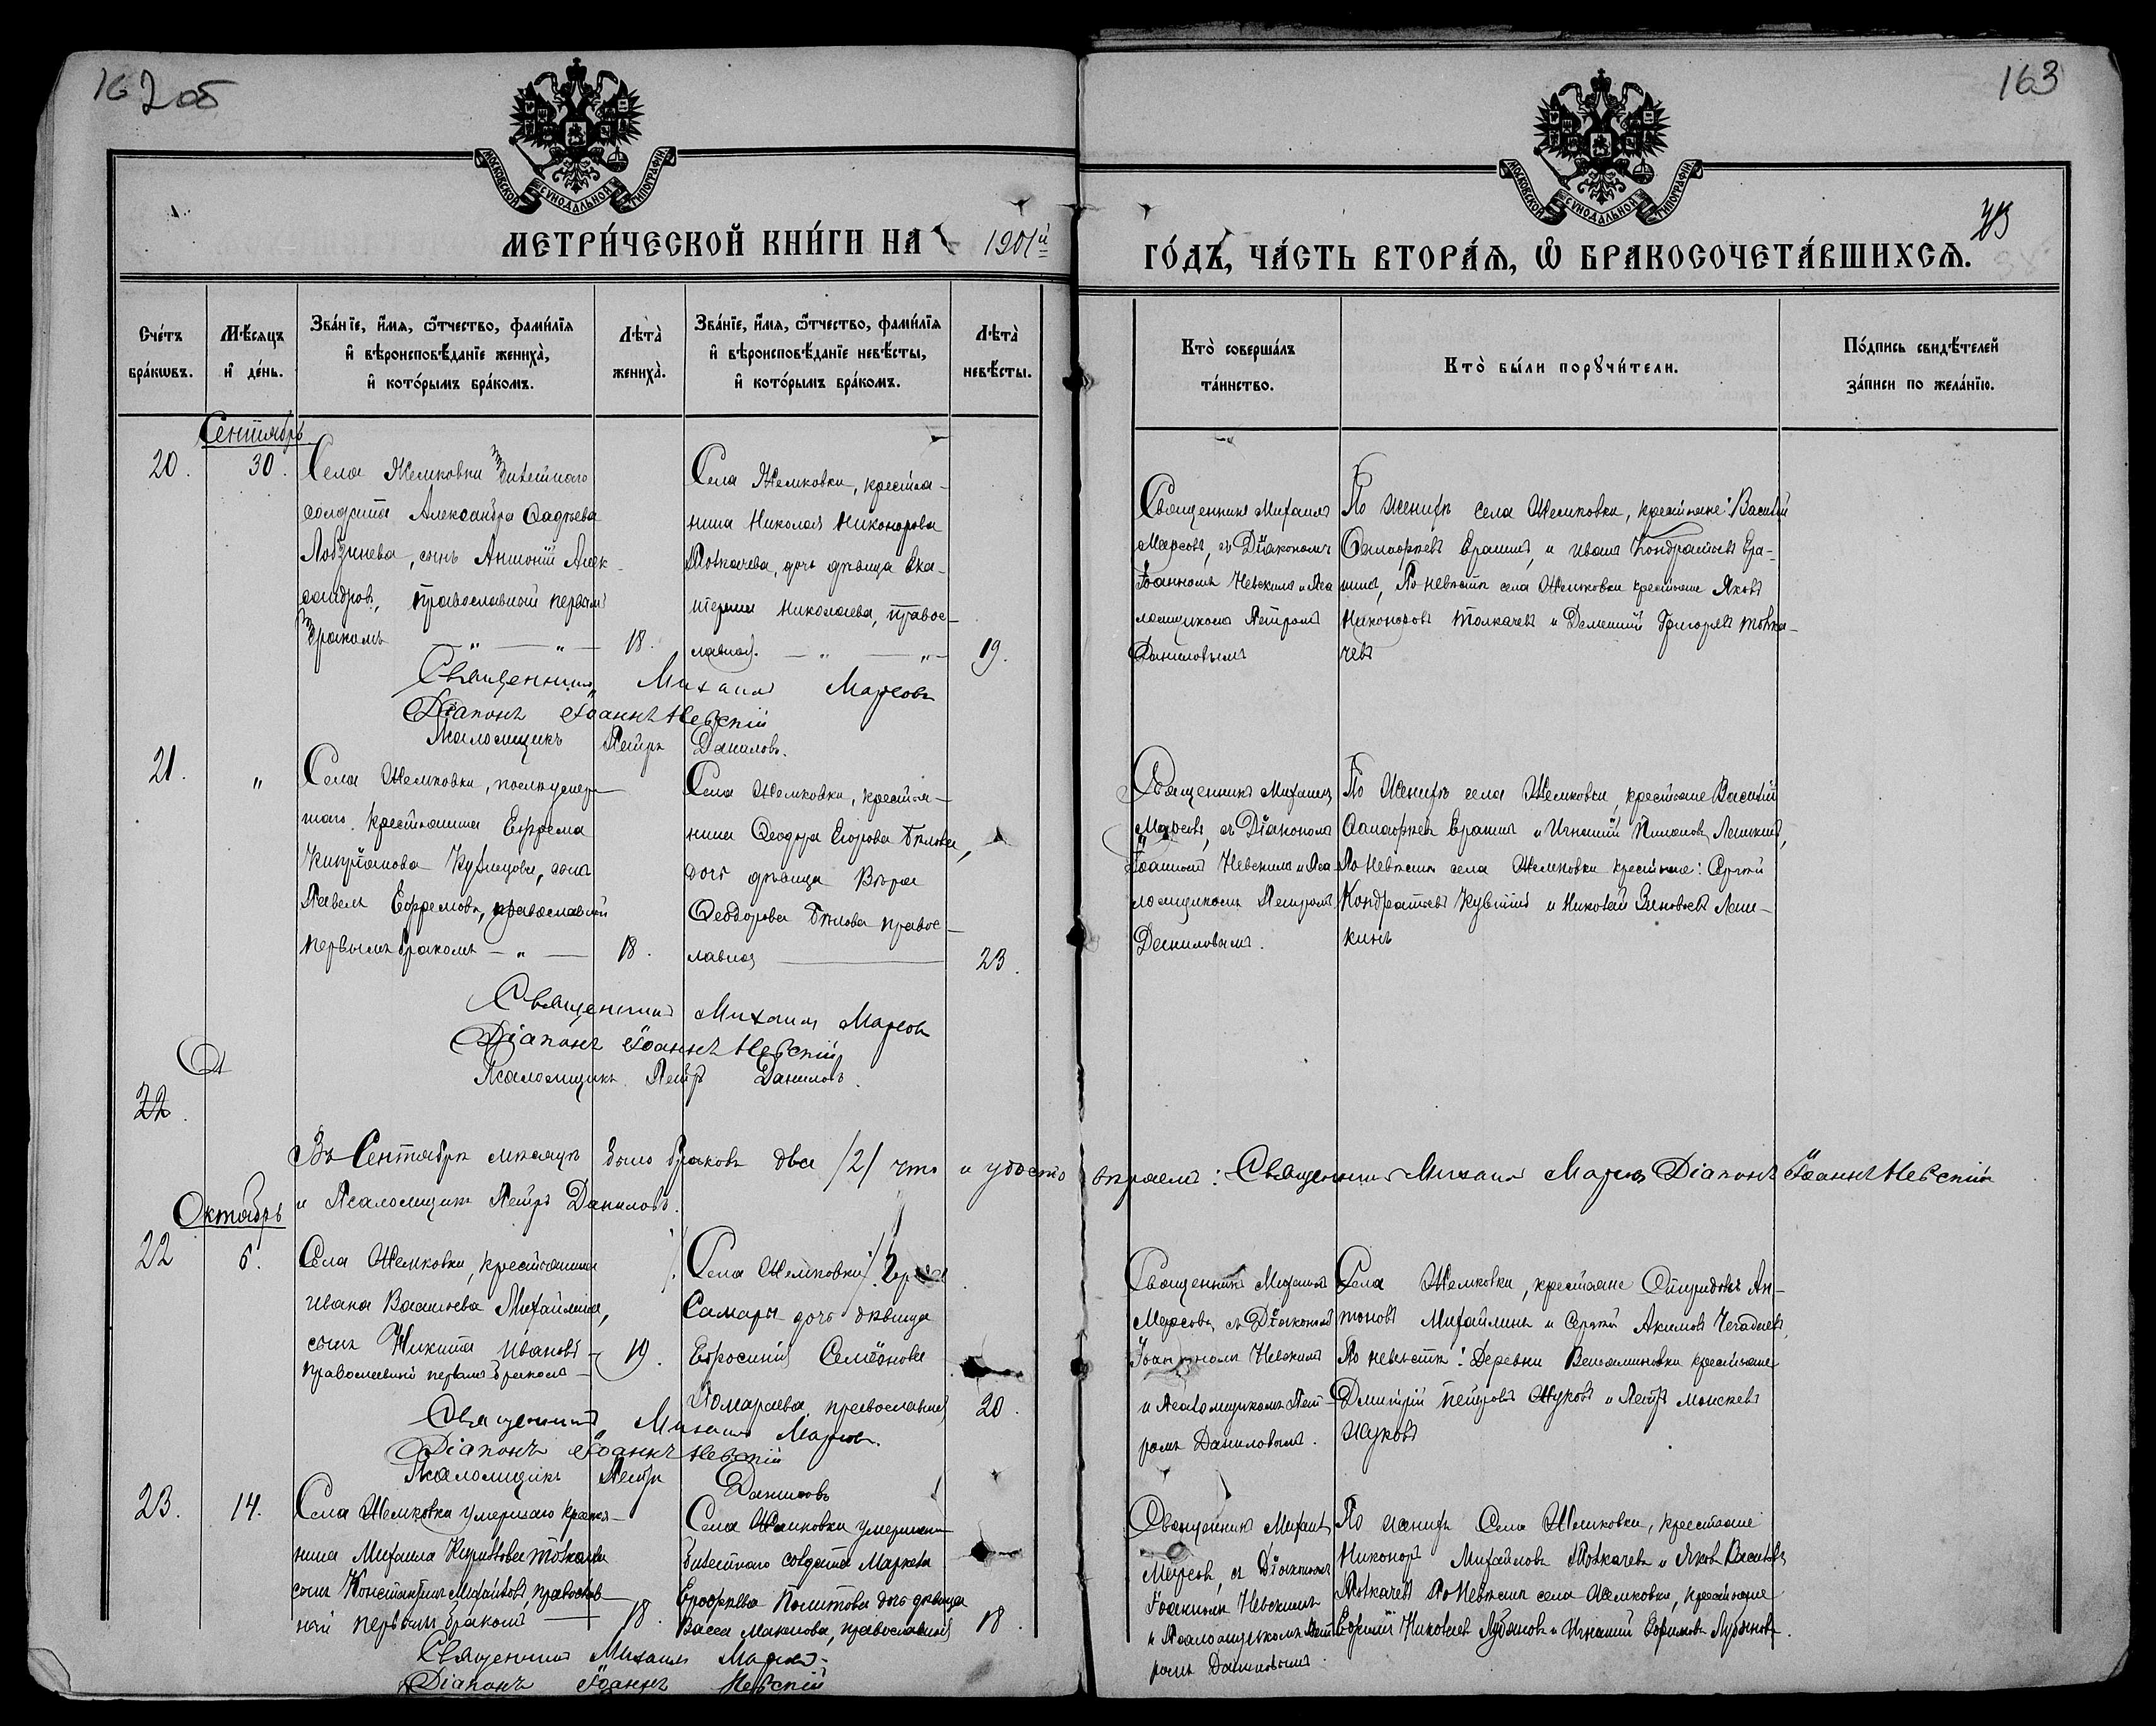 162 об
163
МОСКОВСКОЙ СУНОДАЛЬНОЙ ТИПОГРАФІИ
МОСКОВСКОЙ СУНОДАЛЬНОЙ ТИПОГРАФІИ
МЕТРИ́ЧЕСКОЙ КНИ́ГИ НА 1901й
ГО́ДЪ, ЧА́СТЬ ВТОРА́Я, Ѡ БРАКОСОЧЕТА́ВШИХСЯ.
Сче́тъ бра́кѡвъ.
Мѣ́сяцъ и҆ де́нь.
Зва́нїе, и҆́мя, ѻ҆́тчество, фами́лїя и҆ вѣроисповѣ́данїе жениха̀, и҆ кото́рымъ бра́комъ.
Лѣ́та̀ жениха̀.
Зва́нїе, и҆́мя, ѻ҆́тчество, фами́лїя и҆ вѣроисповѣ́данїе невѣ́сты, и҆ кото́рымъ бра́комъ.
Лѣ́та̀ невѣ́сты.
Кто̀ соверша́лъ та́инство.
Кто̀ бы́ли порꙋчи́тели.
По́дпись свидѣ́телей за́писи по жела́нїю.
Сентябрь
20.
30.
Села Жемковки билетнаго
солдата Александра Фадѣева
Лобзинева, сынъ Антоній Алек-
сандровъ, православный первымъ
бракомъ
18.
Села Жемковки, крестья-
нина Николая Никонорова
Толкачева, дочь дѣвица Ека-
терина Николаева, правос-
лавная.
19.
Священникъ Михаилъ
Марсовъ, съ Діакономъ
Іоанномъ Невскимъ и Пса
ломщикомъ Петромъ
Даниловымъ
По женихѣ села Жемковки, крестьяне: Василій
Ерашинъ, и Иванъ Кондратьевъ Ера-
шинъ, По невѣстѣ села Жемковки крестьяне Яковъ
Никоноровъ Толкачевъ и Дементій Григорьевъ Толка-
чевъ
Священникъ Михаилъ Марсовъ
Діаконъ Іоаннъ Невскій
Псаломщикъ Петръ Даниловъ.
21.
"
Села Жемковки,
крестьянина Ефрема
Кузнецова, сынъ
Павелъ Ефремовъ, православный
первымъ бракомъ
18.
Села Жемковки, крестья-
нина Ѳеодора Егорова Бѣлова,
дочь дѣвица Вѣра
Ѳеодорова Бѣлова правос-
лавная
23.
Священникъ Михаилъ
Марсовъ, съ Діакономъ
Іоанномъ Невскимъ и Пса
ломщикомъ Петромъ
Даниловымъ.
По Женихѣ села Жемковки, крестьяне Василій
Ерашинъ и Игнатій Лёшкинъ,
По Невѣстѣ села Жемковки крестьяне: Сергѣй
Кондратьевъ и Николай Зиновьевъ Леш-
кинъ
Священникъ Михаилъ Марсовъ
Діаконъ Іоаннъ Невскій
Псаломщикъ Петръ Даниловъ.
22.
Въ Сентябрѣ мѣсяцѣ было браковъ два /2/ что и удосто вѣряемъ: Священникъ Михаилъ Марсовъ Діаконъ Іоаннъ Невскій
и Псаломщикъ Петръ Даниловъ.
Октябрь
22
6.
Села Жемковки, крестьянина
Ивана Васильева Михайлина,
сынъ Никита Ивановъ
православный первымъ бракомъ
19.
Села Жемковки
Самары дочь дѣвица
Евросинія Семёнова
православная
20.
Священникъ Михаилъ
Марсовъ, съ Діакономъ
Іоанномъ Невскимъ
и Псаломщикомъ Пет-
ромъ Даниловымъ.
Села Жемковки, крестьяне Спиридонъ Ан-
тоновъ Михайлинъ и Сергѣй Акимовъ
По невѣстѣ: Деревни Веньаминовки крестьяне
Дмитрій Петровъ Жуковъ и Петръ
Жуковъ
Священникъ Михаилъ Марсовъ.
Діаконъ Іоаннъ Невскій
Псаломщикъ Петръ Даниловъ
23.
14.
Села Жемковки умершаго кресть-
нина Михаила Кириллова Толкачева
сынъ Константинъ Михайловъ, православ-
ный первымъ бракомъ
18.
Села Жемковки умершаго
билетнаго солдата
Ерофѣева дочь дѣвица
Васса православная
18.
Священникъ Михаилъ
Марсовъ, съ Діакономъ
Іоанномъ Невскимъ
и Псаломщикомъ Пет
ромъ Даниловымъ.
По женихѣ Села Жемковки, крестьяне
Никоноръ Михайловъ Толкачевъ и Яковъ Васильевъ
Толкачевъ По Невѣстѣ села Жемковки, крестьяне
Николаевъ Лубяновъ и Игнатій Ефимовъ Лубяновъ.
Священникъ Михаилъ Марсовъ
Діаконъ Іоаннъ Невскій